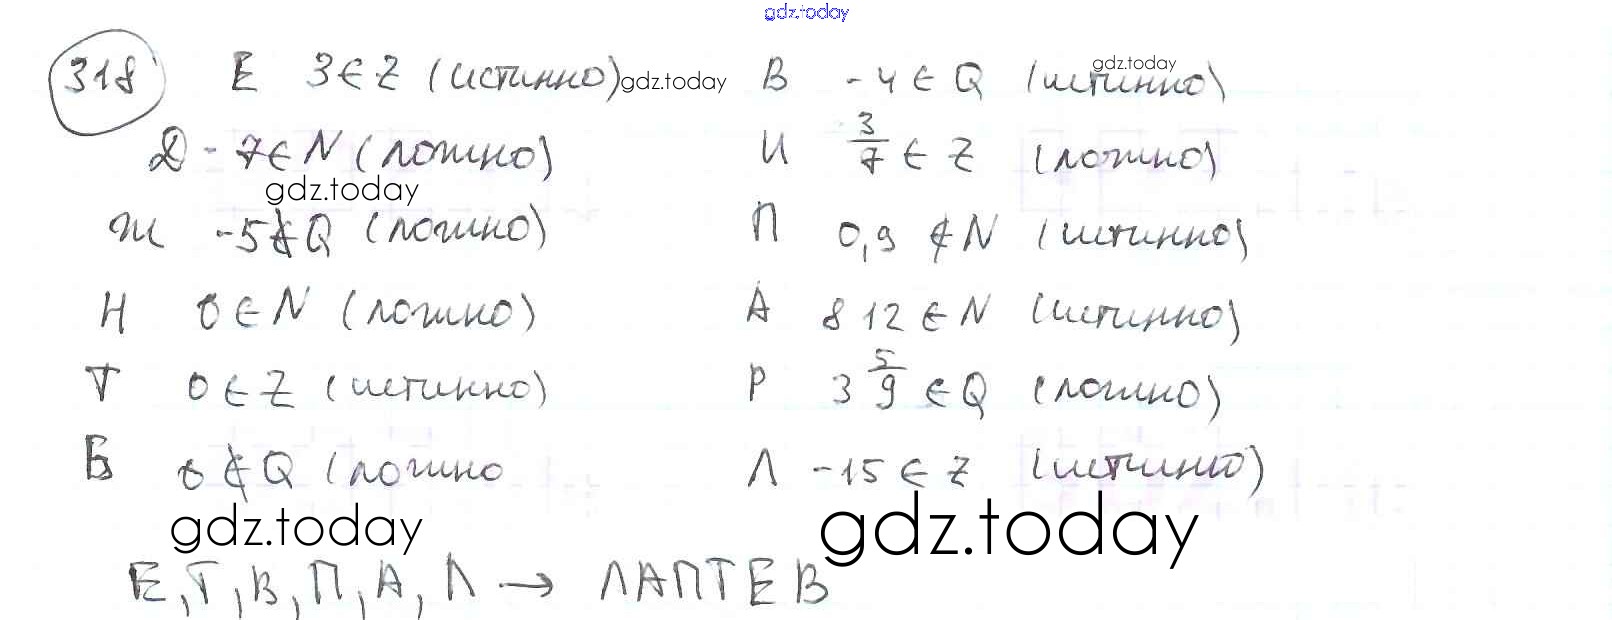 gdz.today
318 Е 3 ∈ Z (истинно) gdz.today В -4 ∈ Q (истинно) gdz.today
Д -7 ∈ N (ложно) И 3/7 ∈ Z (ложно)
gdz.today
Ж -5 ∉ Q (ложно) П 0,9 ∉ N (истинно)
Н 0 ∈ N (ложно) А 812 ∈ N (истинно)
Т 0 ∈ Z (истинно) Р 3 5/9 ∈ Q (ложно)
Б 0 ∉ Q (ложно Л -15 ∈ Z (истинно)
gdz.today gdz.today
Е, Т, В, П, А, Л → ЛАПТЕВ